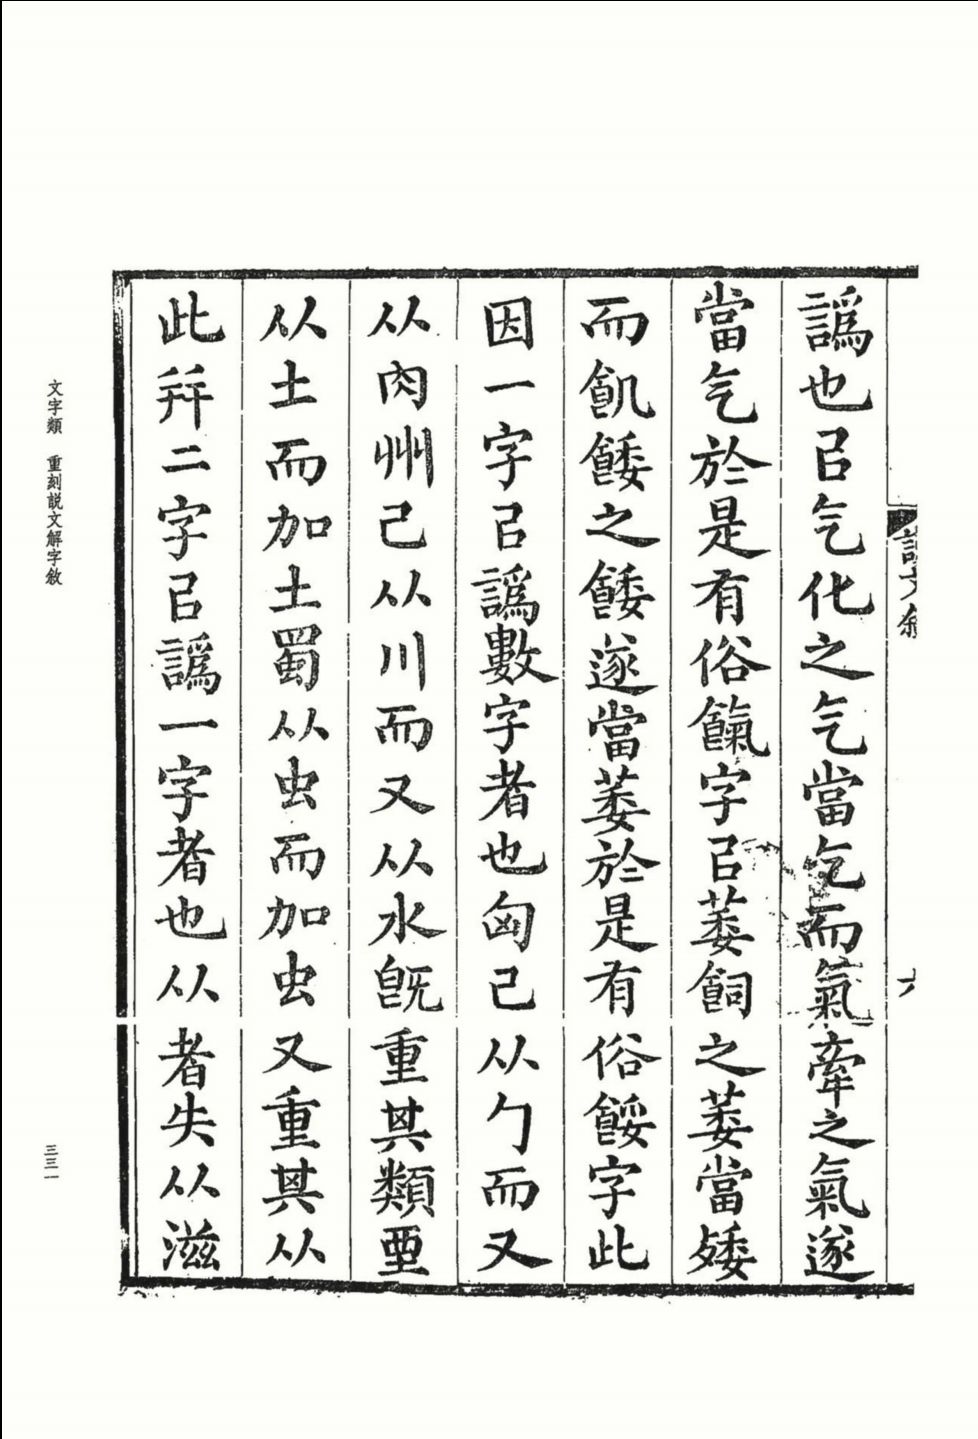 譌也㠯气化之气當乞而氣牽之氣遂
當气於是有俗餼字㠯萎飼之萎當矮
而飢餧之餧遂當萎於是有俗餒字此
因一字㠯譌數字者也匈已从勹而又
从肉州已从川而又从水旣重其類垔
从土而加土蜀从虫而加虫又重其从
此幷二字㠯譌一字者也从者失从滋
說文敘
六
文字類 重刻説文解字敘
三三一